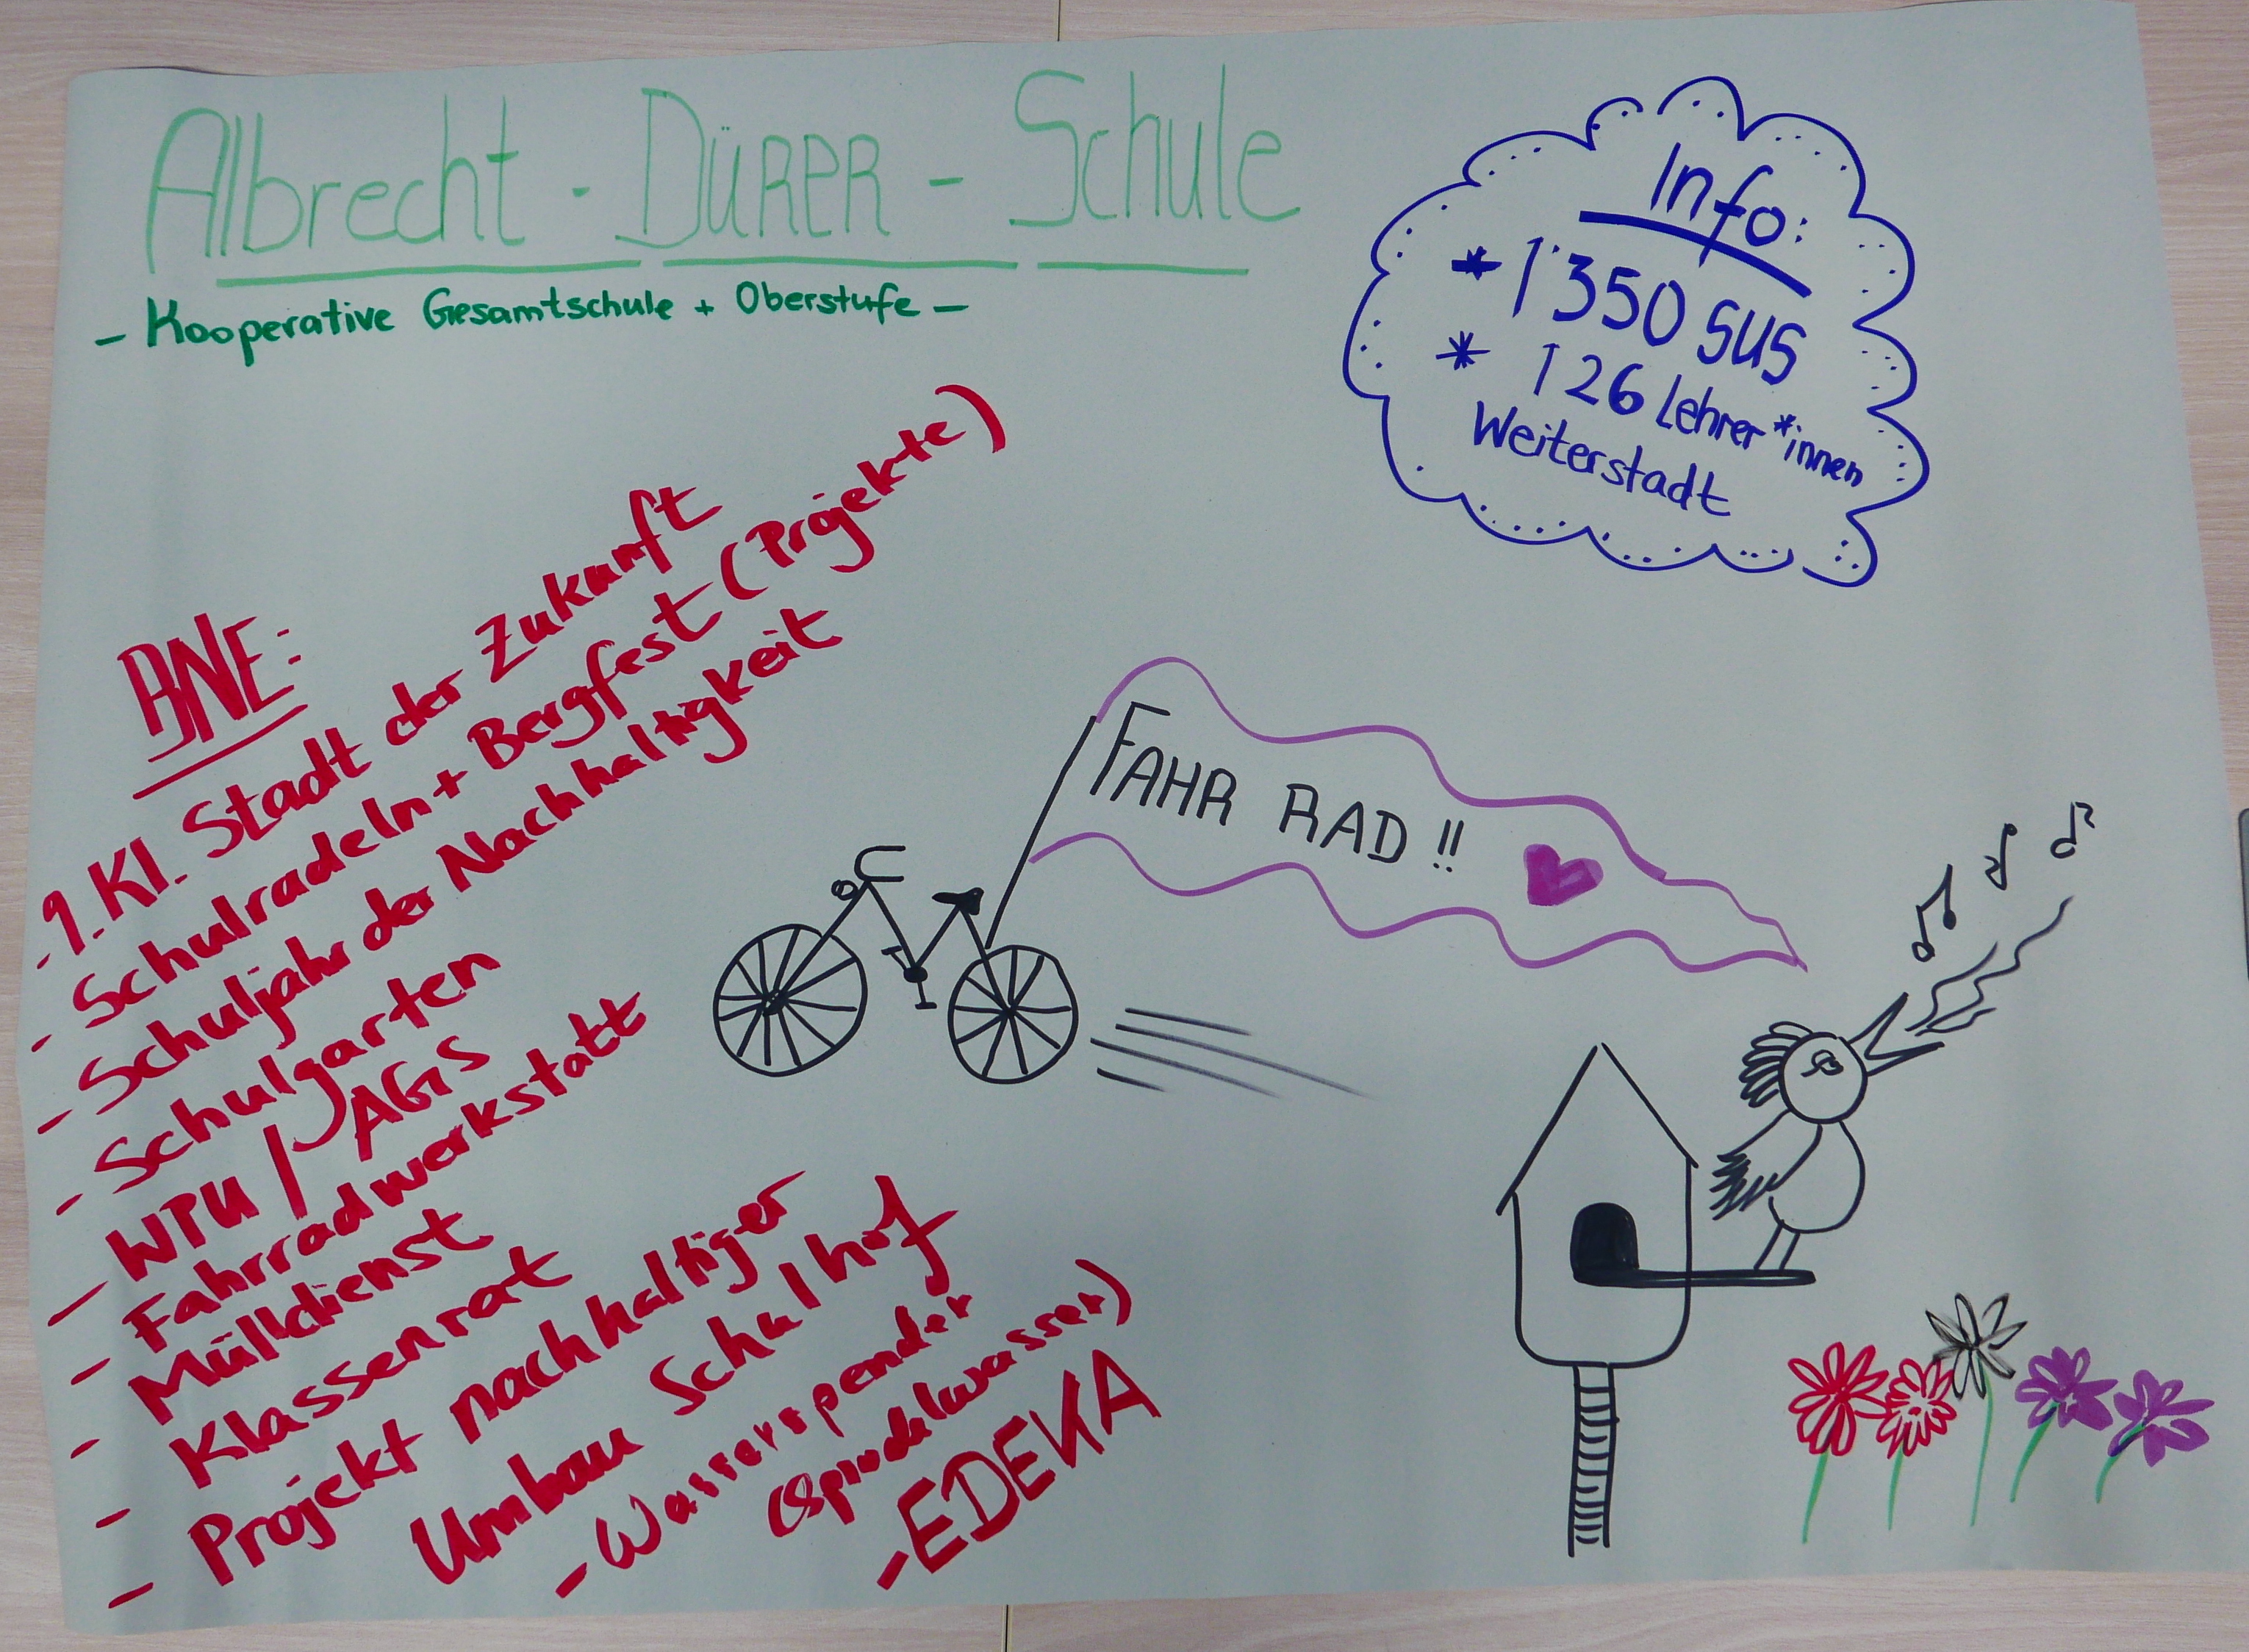 Albrecht - DÜRER - Schule
- Kooperative Gesamtschule + Oberstufe -
Info:
* 1'350 SUS
* 126 Lehrer*innen
Weiterstadt
BNE:
- 9. Kl. Stadt der Zukunft
- Schulradeln + Bergfest (Projekte)
- Schuljahr der Nachhaltigkeit
- Schulgarten
- WPU / AGs
- Fahrradwerkstatt
- Mülldienst
- Klassenrat
- Projekt nachhaltiger
Umbau Schulhof
- Wasserspender
(Sprudelwasser)
- EDEKA
FAHR RAD!!